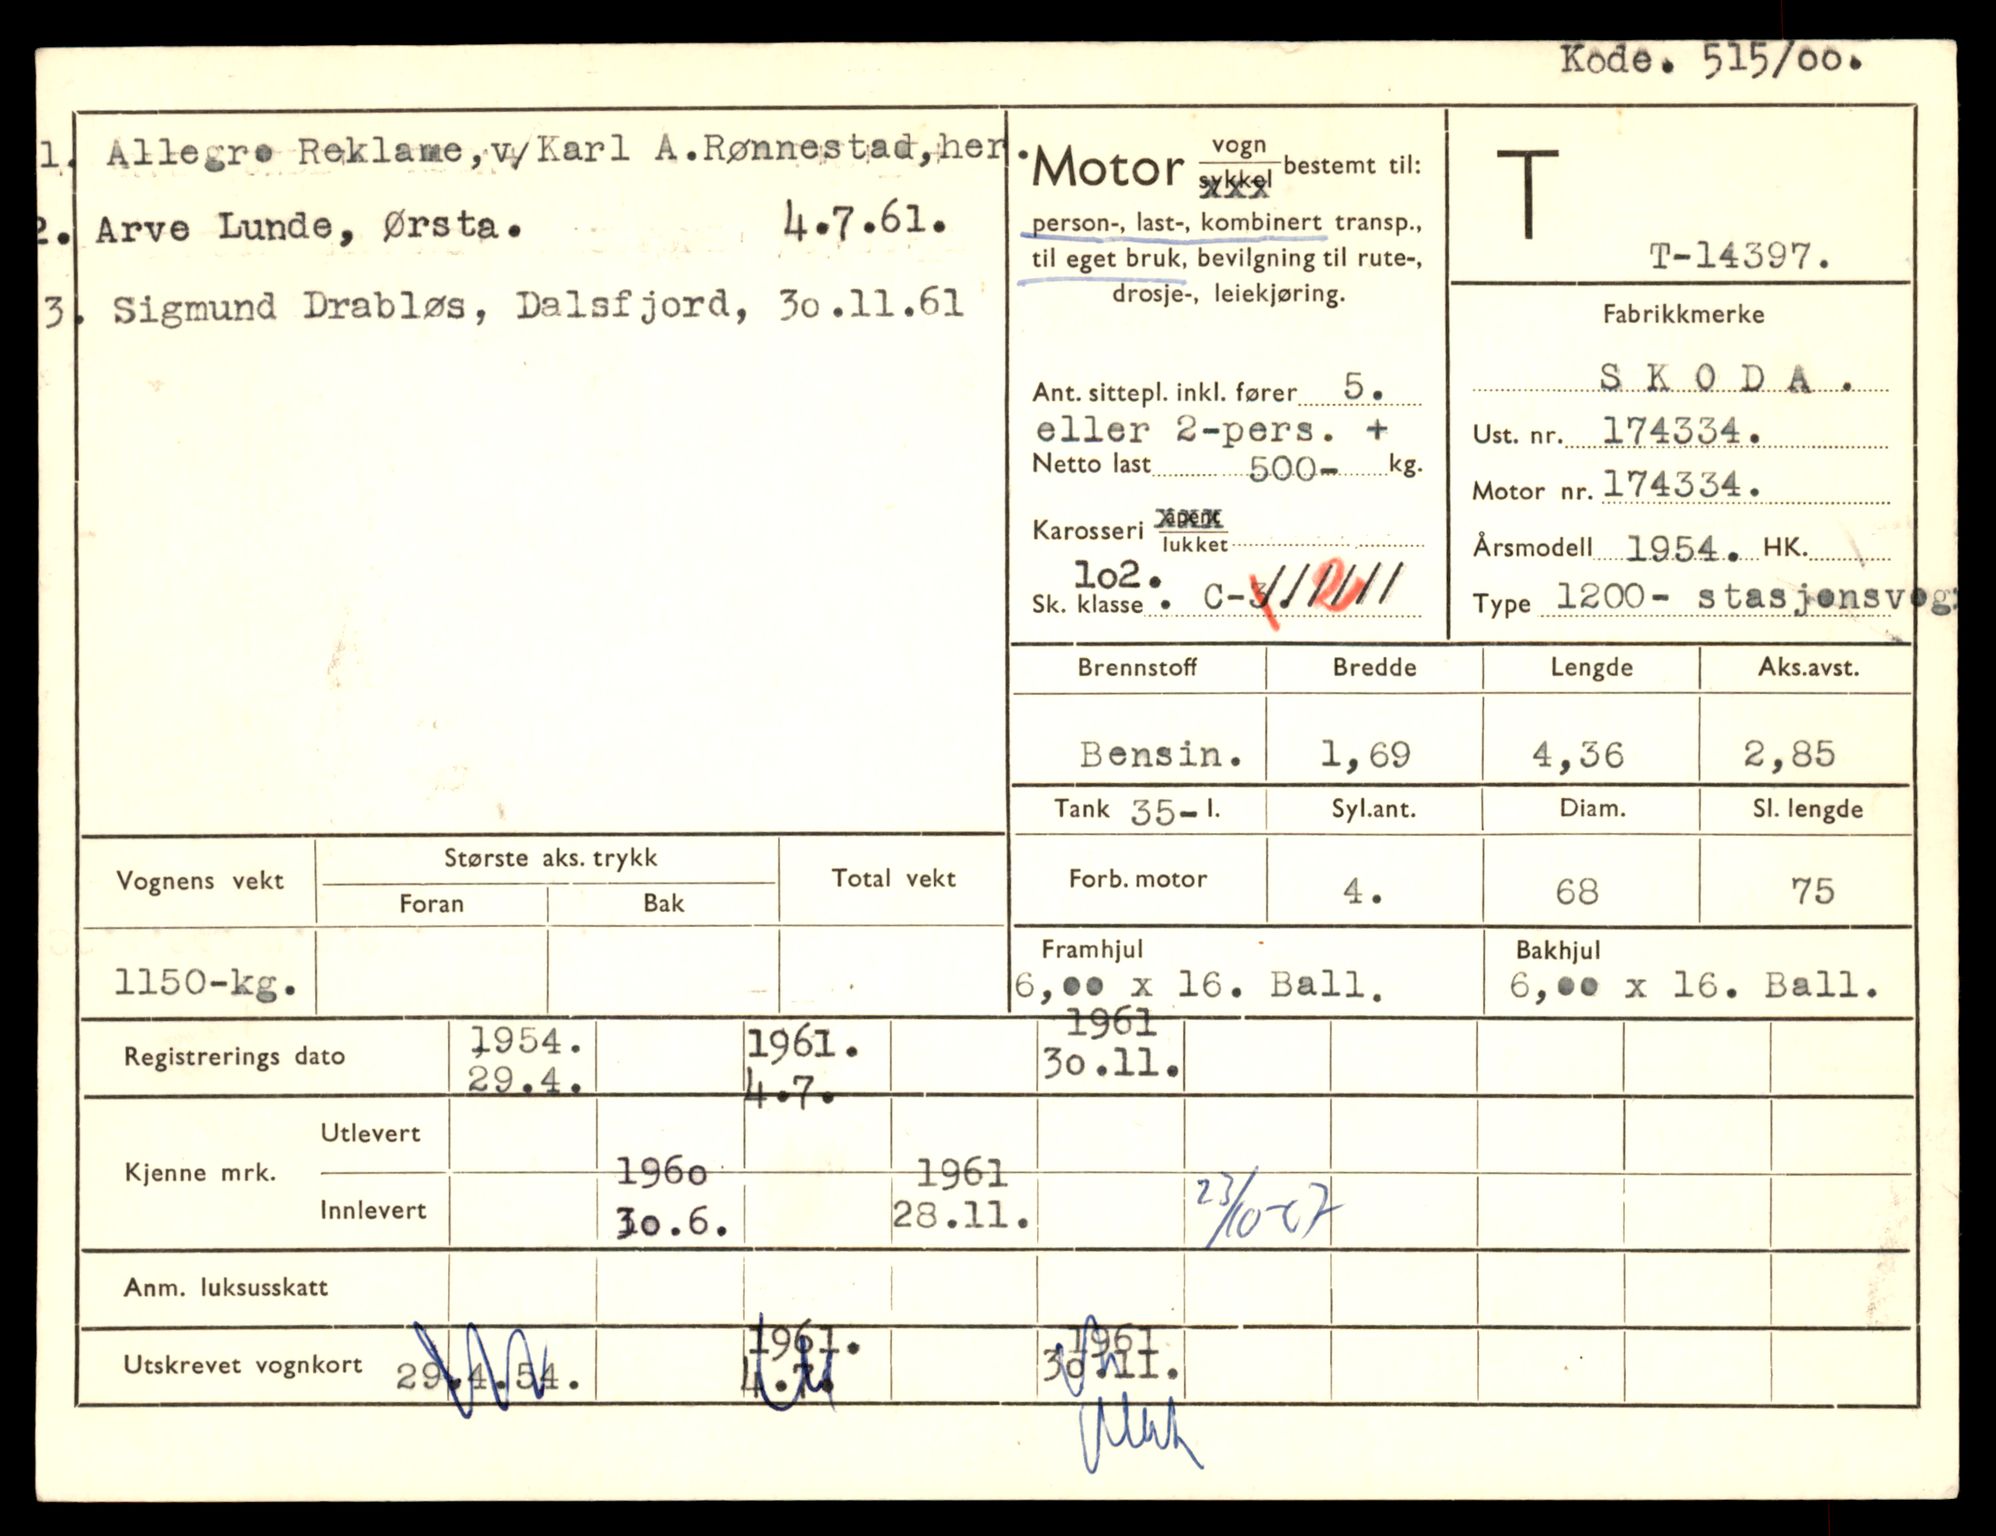 Kode. 515/oo.
1. Allegro Reklame, v/Karl A.Rønnestad, her.
2. Arve Lunde, Ørsta. 4.7.61.
3. Sigmund Drabløs, Dalsfjord, 3o.11.61
Motor vogn sykkel bestemt til:
person-, last-, kombinert transp.,
til eget bruk, bevilgning til rute-,
drosje-, leiekjøring.
Ant. sittepl. inkl. fører 5.
eller 2-pers. +
Netto last 500- kg.
Karosseri åpent lukket
1o2.
Sk. klasse . C-3. 2
T
T-14397.
Fabrikkmerke
S K O D A .
Ust. nr. 174334.
Motor nr. 174334.
Årsmodell 1954. HK.
Type 1200- stasjonsvog
Brennstoff Bredde Lengde Aks.avst.
Bensin. 1,69 4,36 2,85
Tank 35- l. Syl.ant. Diam. Sl. lengde
Forb. motor 4. 68 75
Framhjul Bakhjul
6,oo x 16. Ball. 6,oo x 16. Ball.
Vognens vekt Største aks. trykk Total vekt
Foran Bak
1150-kg.
Registrerings dato 1954. 1961. 1961
29.4. 4.7. 3o.11.
Utlevert
Kjenne mrk. 196o 1961
Innlevert 3o.6. 28.11. 23/10-67
Anm. luksusskatt
1961. 1961
Utskrevet vognkort 29.4.54. 4.7. 3o.11.